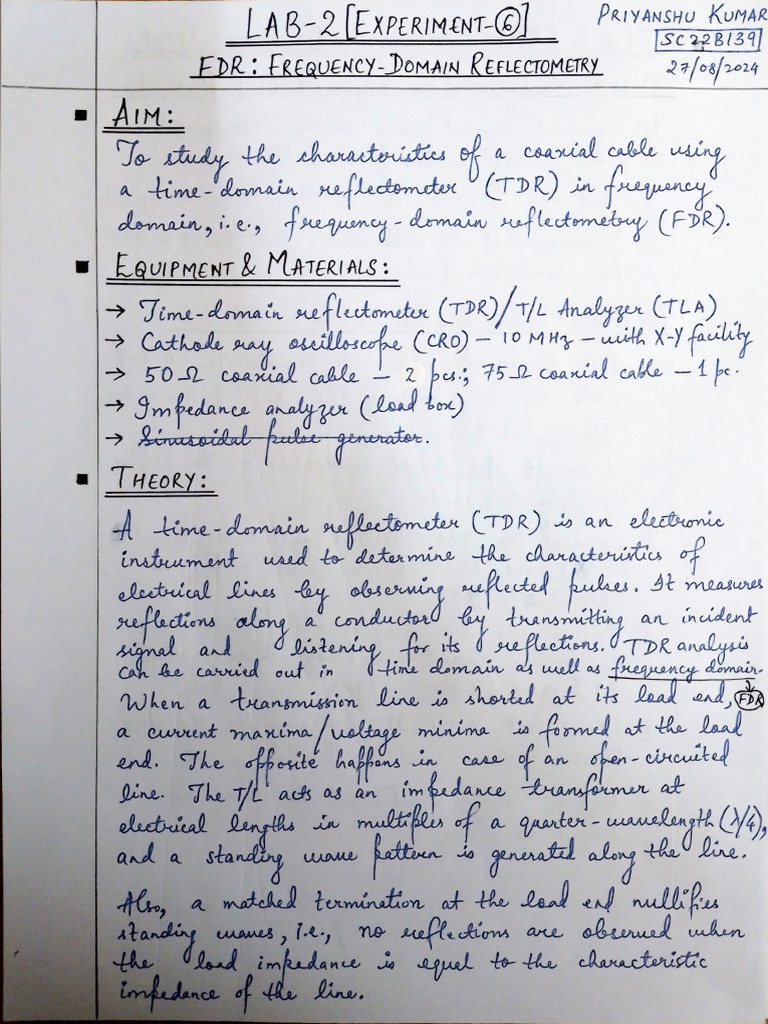 LAB-2 [EXPERIMENT-⑥]
PRIYANSHU KUMAR
SC22B139
27/08/2024
FDR: FREQUENCY-DOMAIN REFLECTOMETRY
▪ AIM:
To study the characteristics of a coaxial cable using
a time-domain reflectometer (TDR) in frequency
domain, i.e., frequency-domain reflectometry (FDR).
▪ EQUIPMENT & MATERIALS:
→ Time-domain reflectometer (TDR)/T/L Analyzer (TLA)
→ Cathode ray oscilloscope (CRO) – 10 MHz – with X-Y facility
→ 50Ω coaxial cable – 2 pcs.; 75Ω coaxial cable – 1 pc.
→ Impedance analyzer (load box)
→ Sinusoidal pulse generator.
▪ THEORY:
A time-domain reflectometer (TDR) is an electronic
instrument used to determine the characteristics of
electrical lines by observing reflected pulses. It measures
reflections along a conductor by transmitting an incident
signal and listening for its reflections. TDR analysis
can be carried out in time domain as well as frequency domain.
When a transmission line is shorted at its load end, FDR
a current maxima/voltage minima is formed at the load
end. The opposite happens in case of an open-circuited
line. The T/L acts as an impedance transformer at
electrical lengths in multiples of a quarter-wavelength (λ/4),
and a standing wave pattern is generated along the line.
Also, a matched termination at the load end nullifies
standing waves, i.e., no reflections are observed when
the load impedance is equal to the characteristic
impedance of the line.